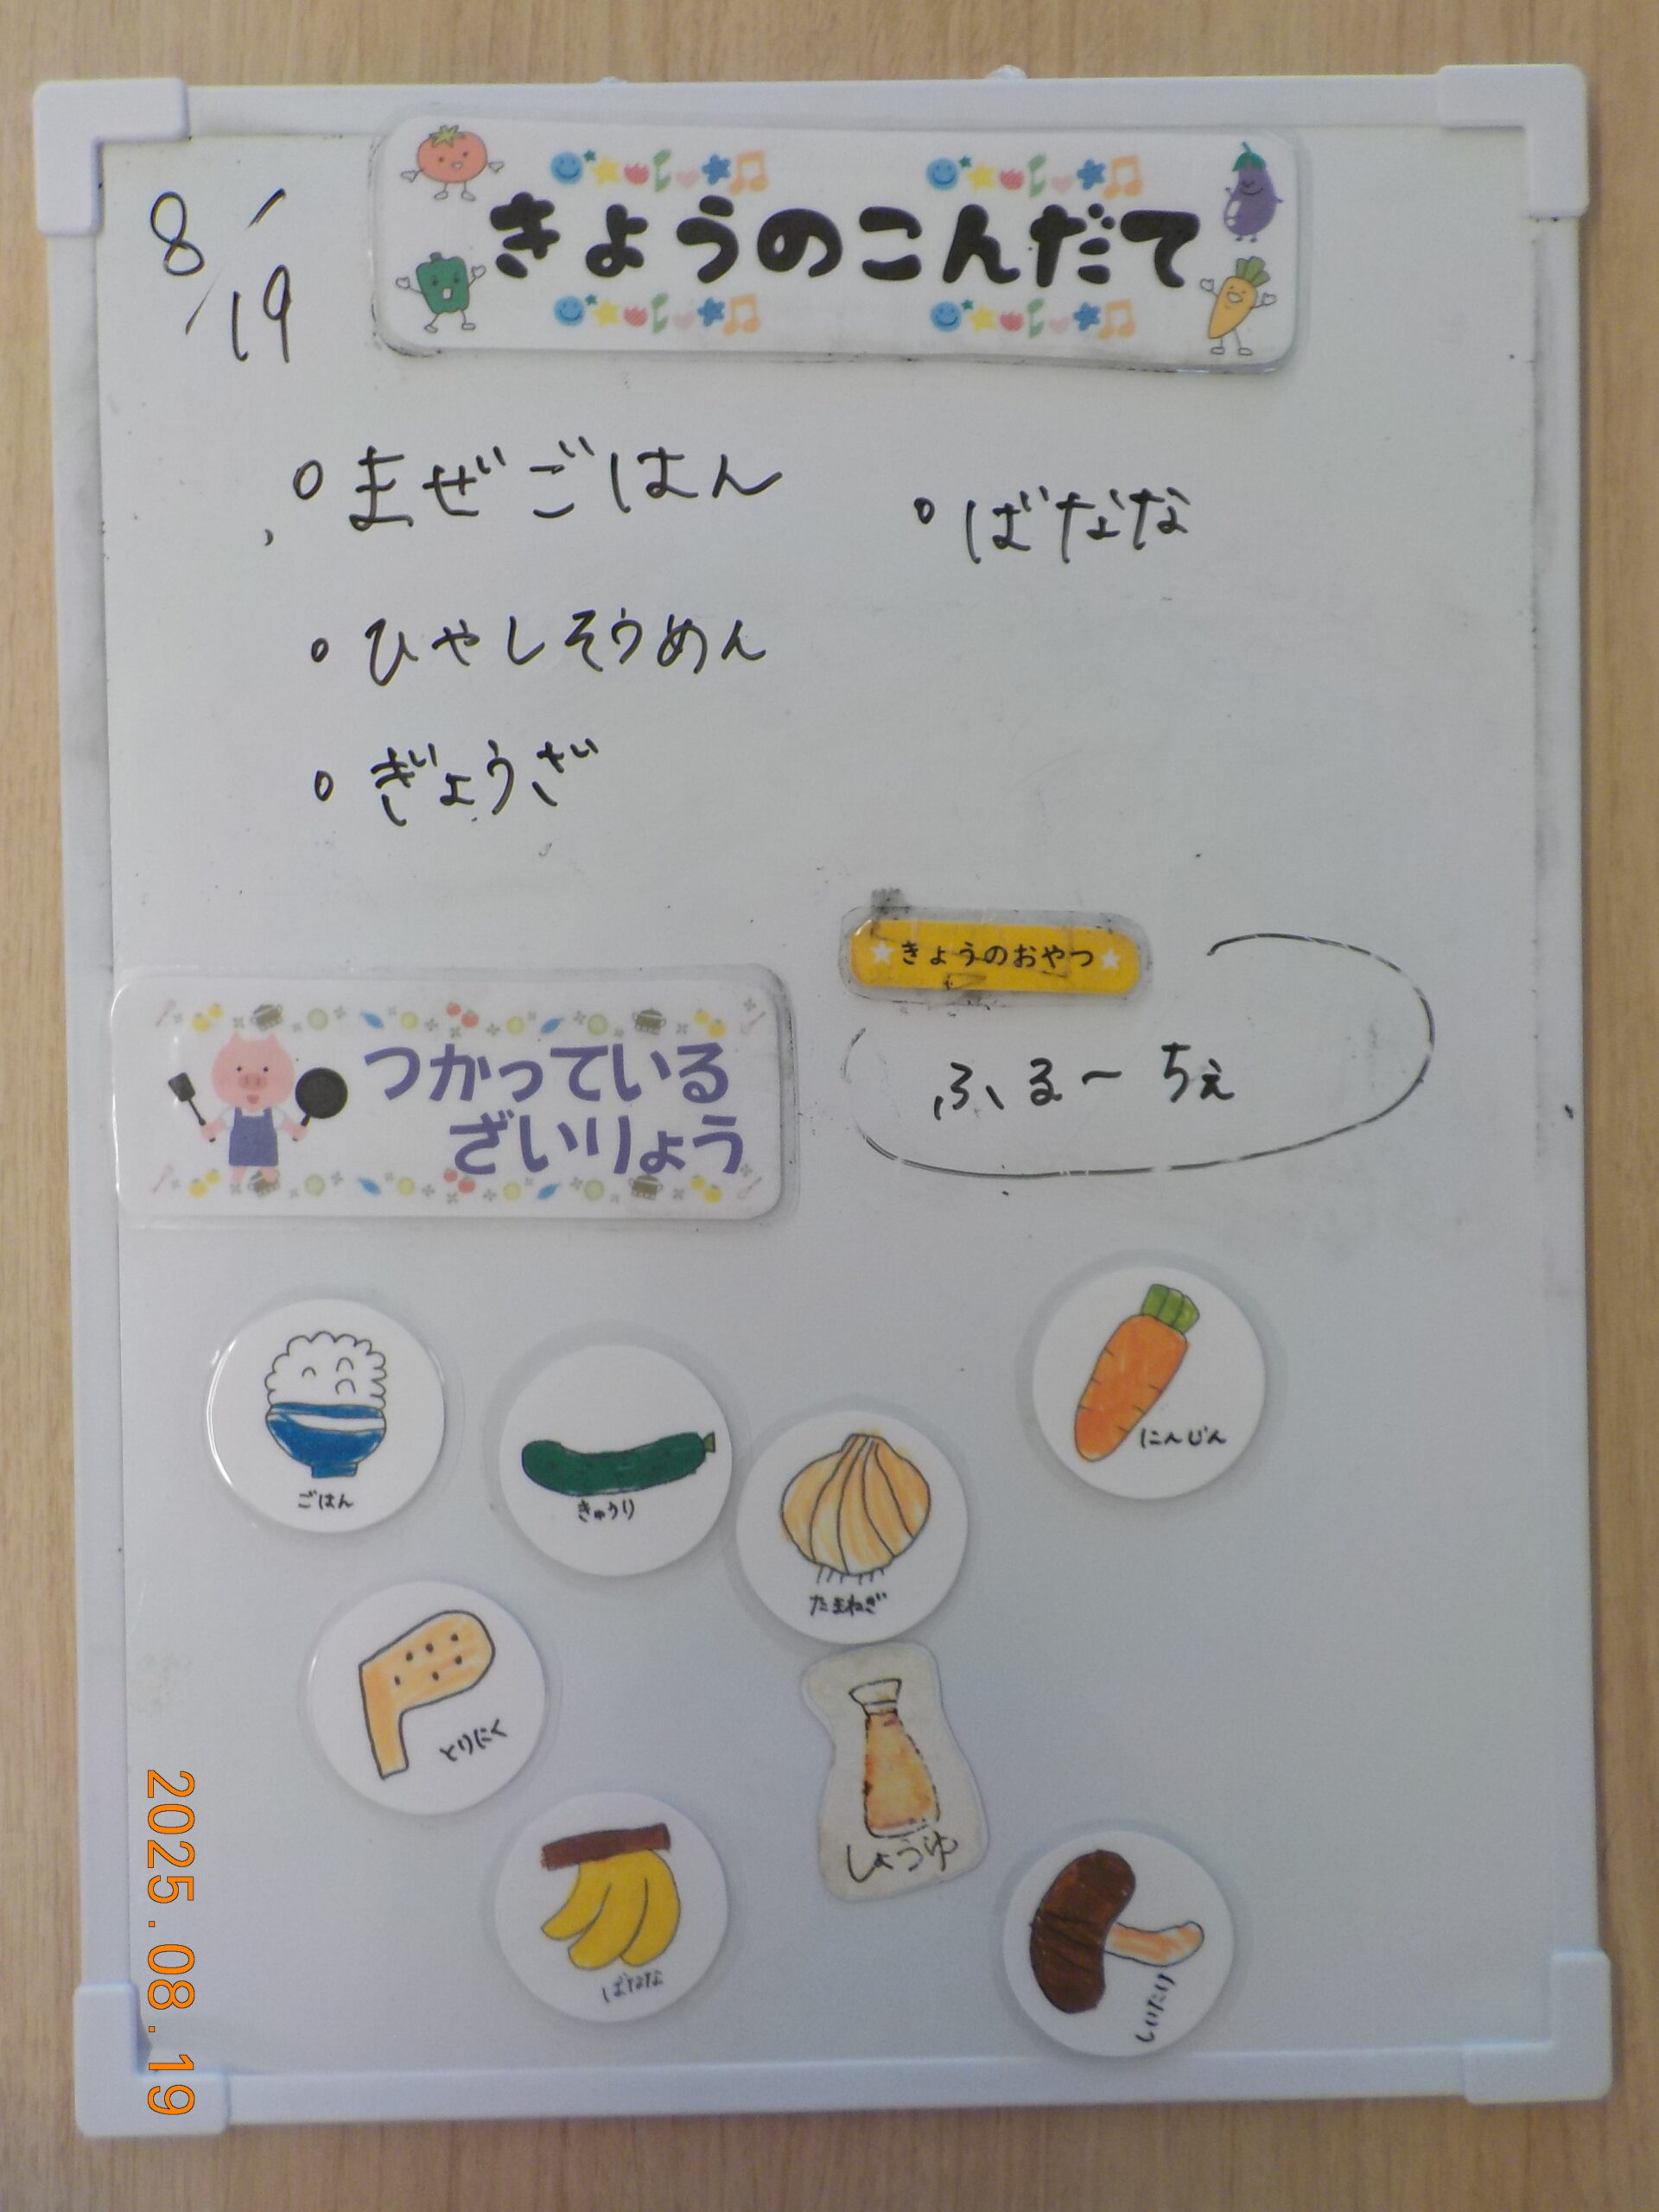 8/19
きょうのこんだて
まぜごはん
ひやしそうめん
ぎょうざ
ばなな
きょうのおやつ
ふる〜ちぇ
つかっている
ざいりょう
ごはん
きゅうり
たまねぎ
にんじん
とりにく
しょうゆ
ばなな
しいたけ
2025.08.19